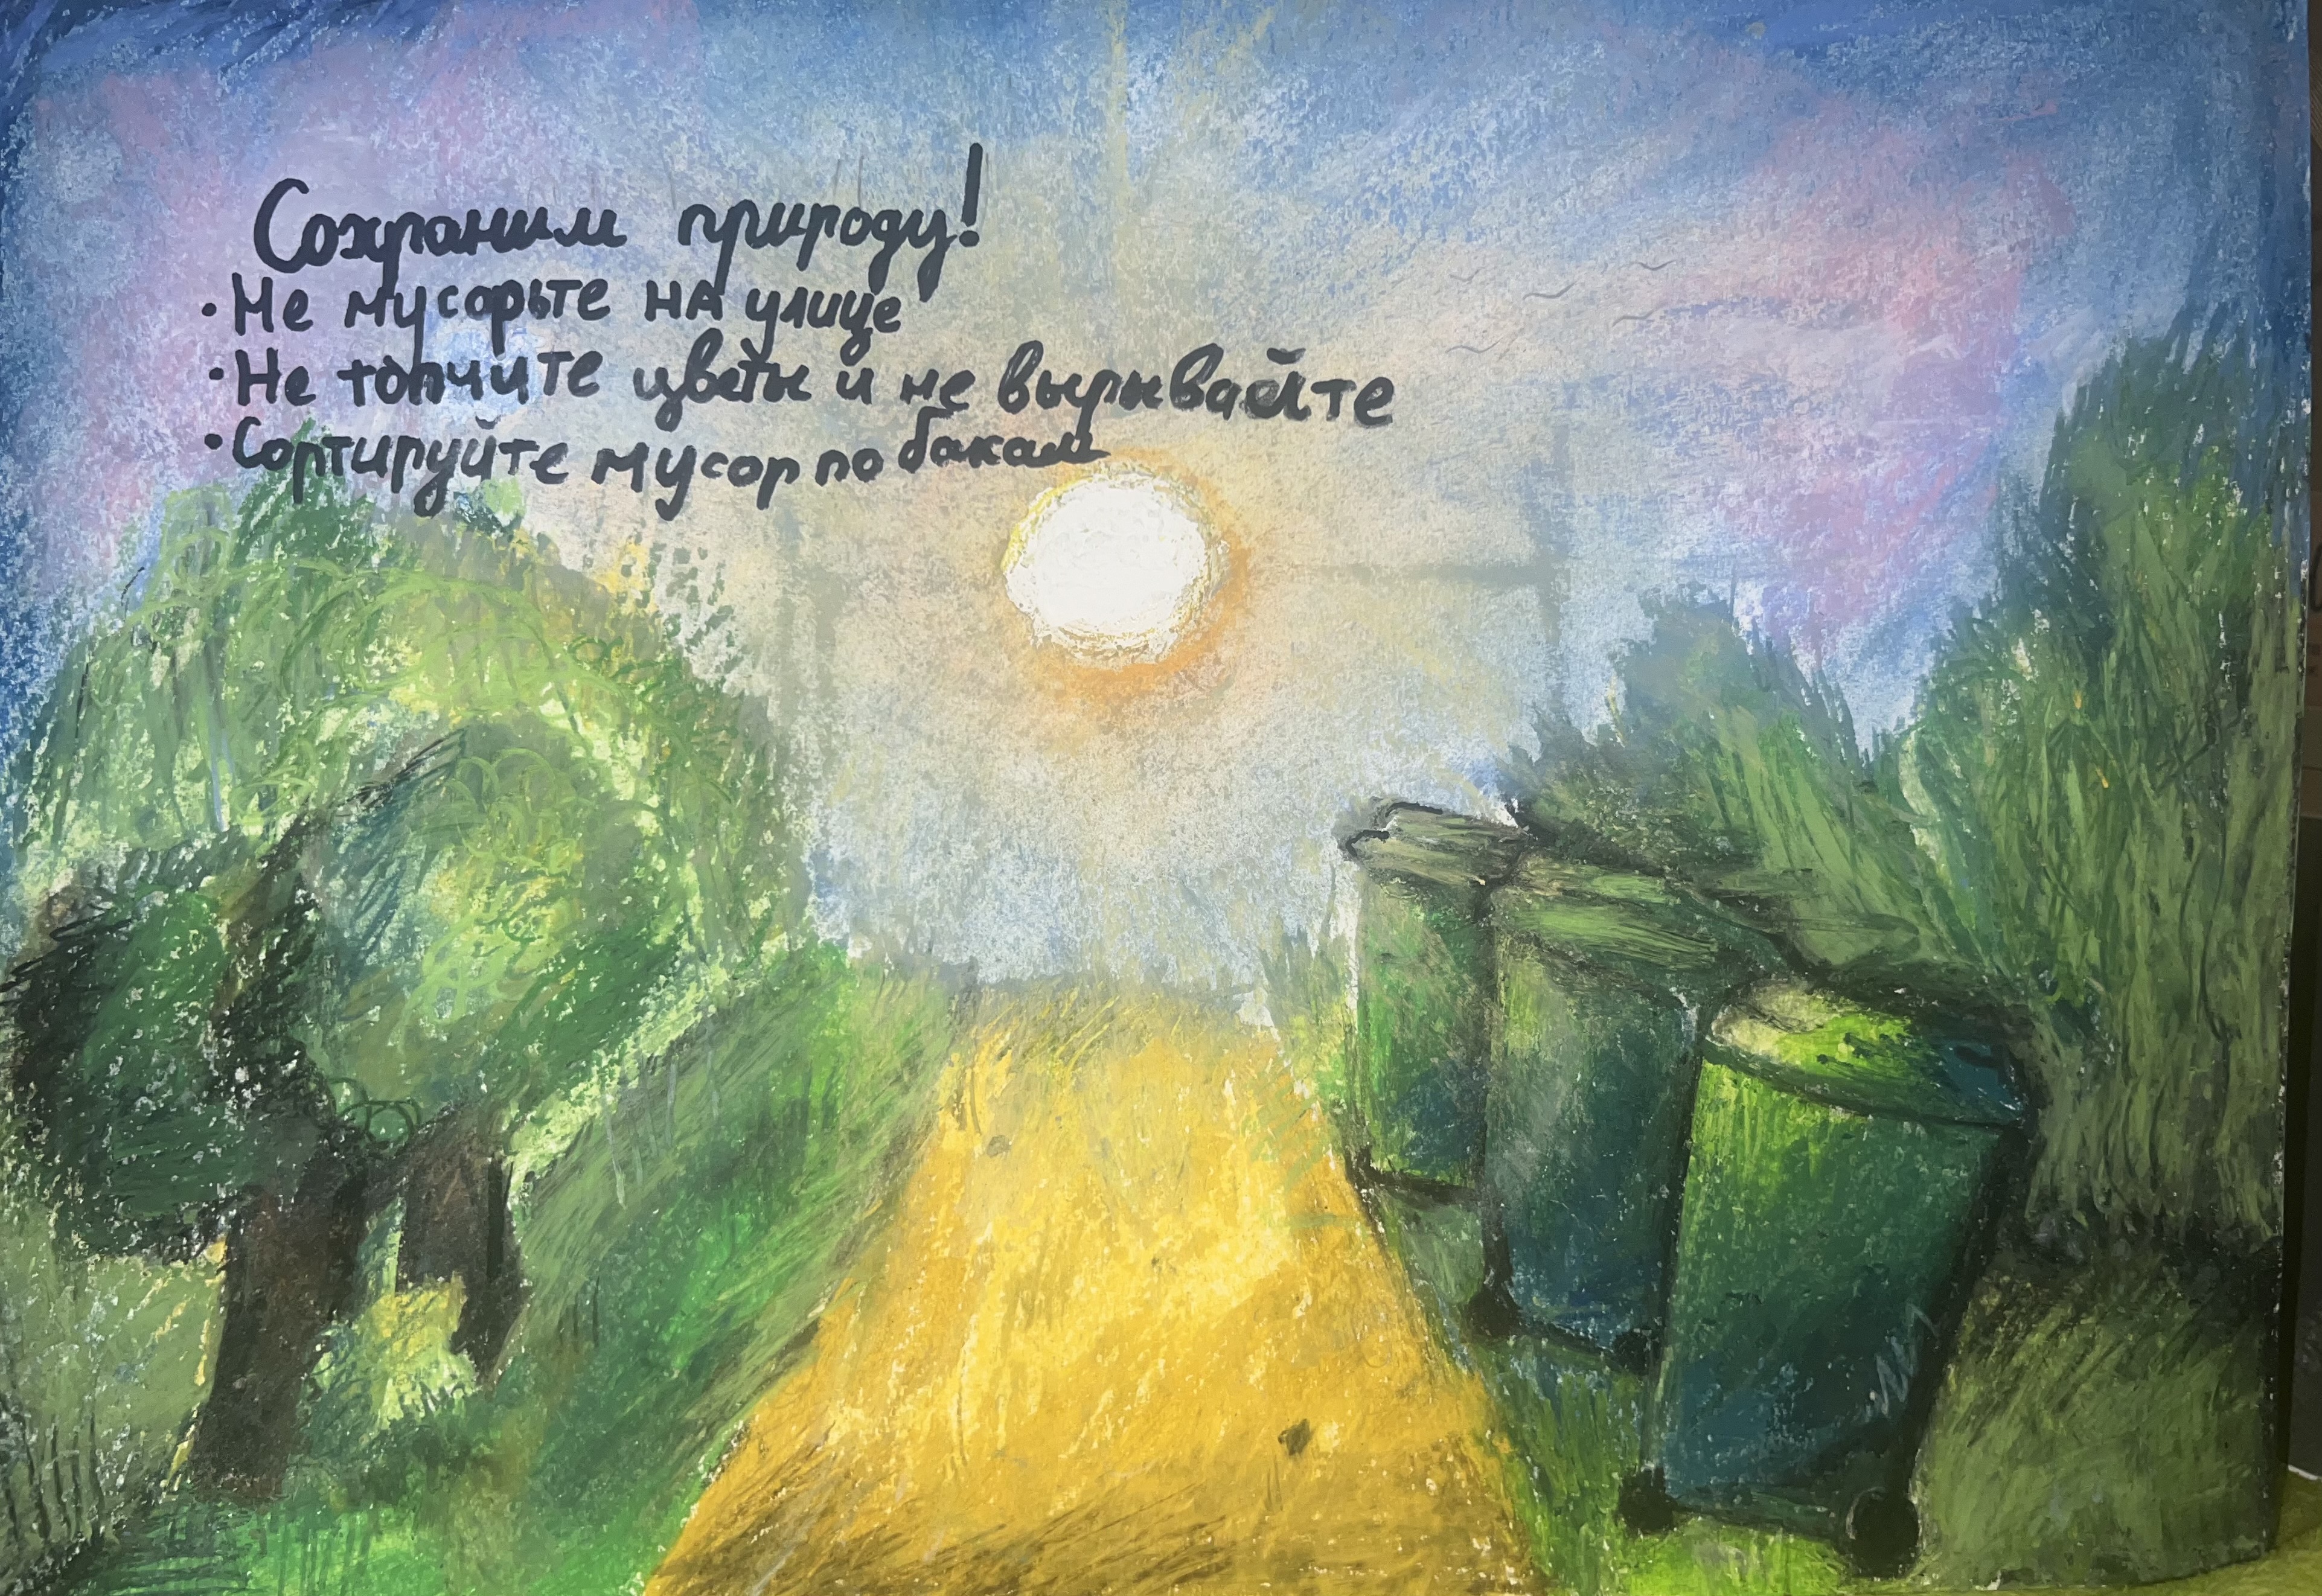 Сохраним природу!
• Не мусорьте на улице
• Не топчите цветы и не вырывайте
• Сортируйте мусор по бакам